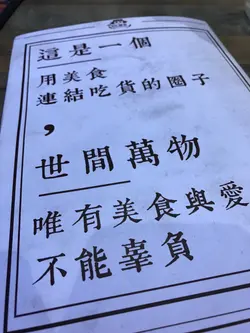 這是一個
用美食
連結吃貨的圈子
，
世間萬物
唯有美食與愛
不能辜負